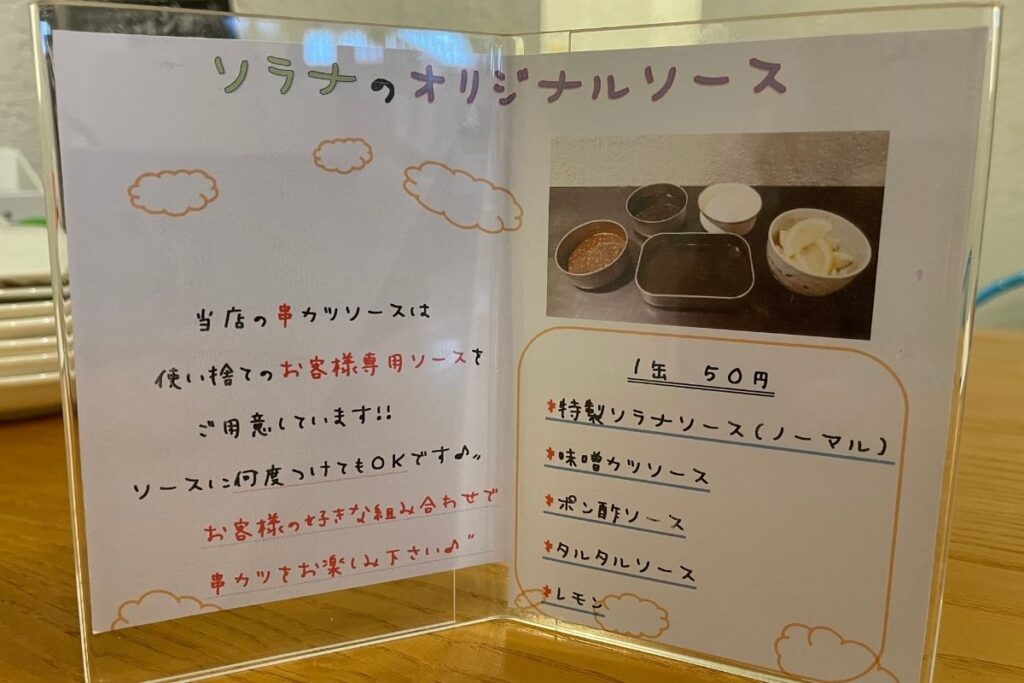 ソラナのオリジナルソース
当店の串カツソースは
使い捨てのお客様専用ソースを
ご用意しています!!
ソースに何度つけてもOKです♪〃
お客様の好きな組み合わせで
串カツをお楽しみ下さい♪〃
1缶 50円
*特製ソラナソース(ノーマル)
*味噌カツソース
*ポン酢ソース
*タルタルソース
*レモン